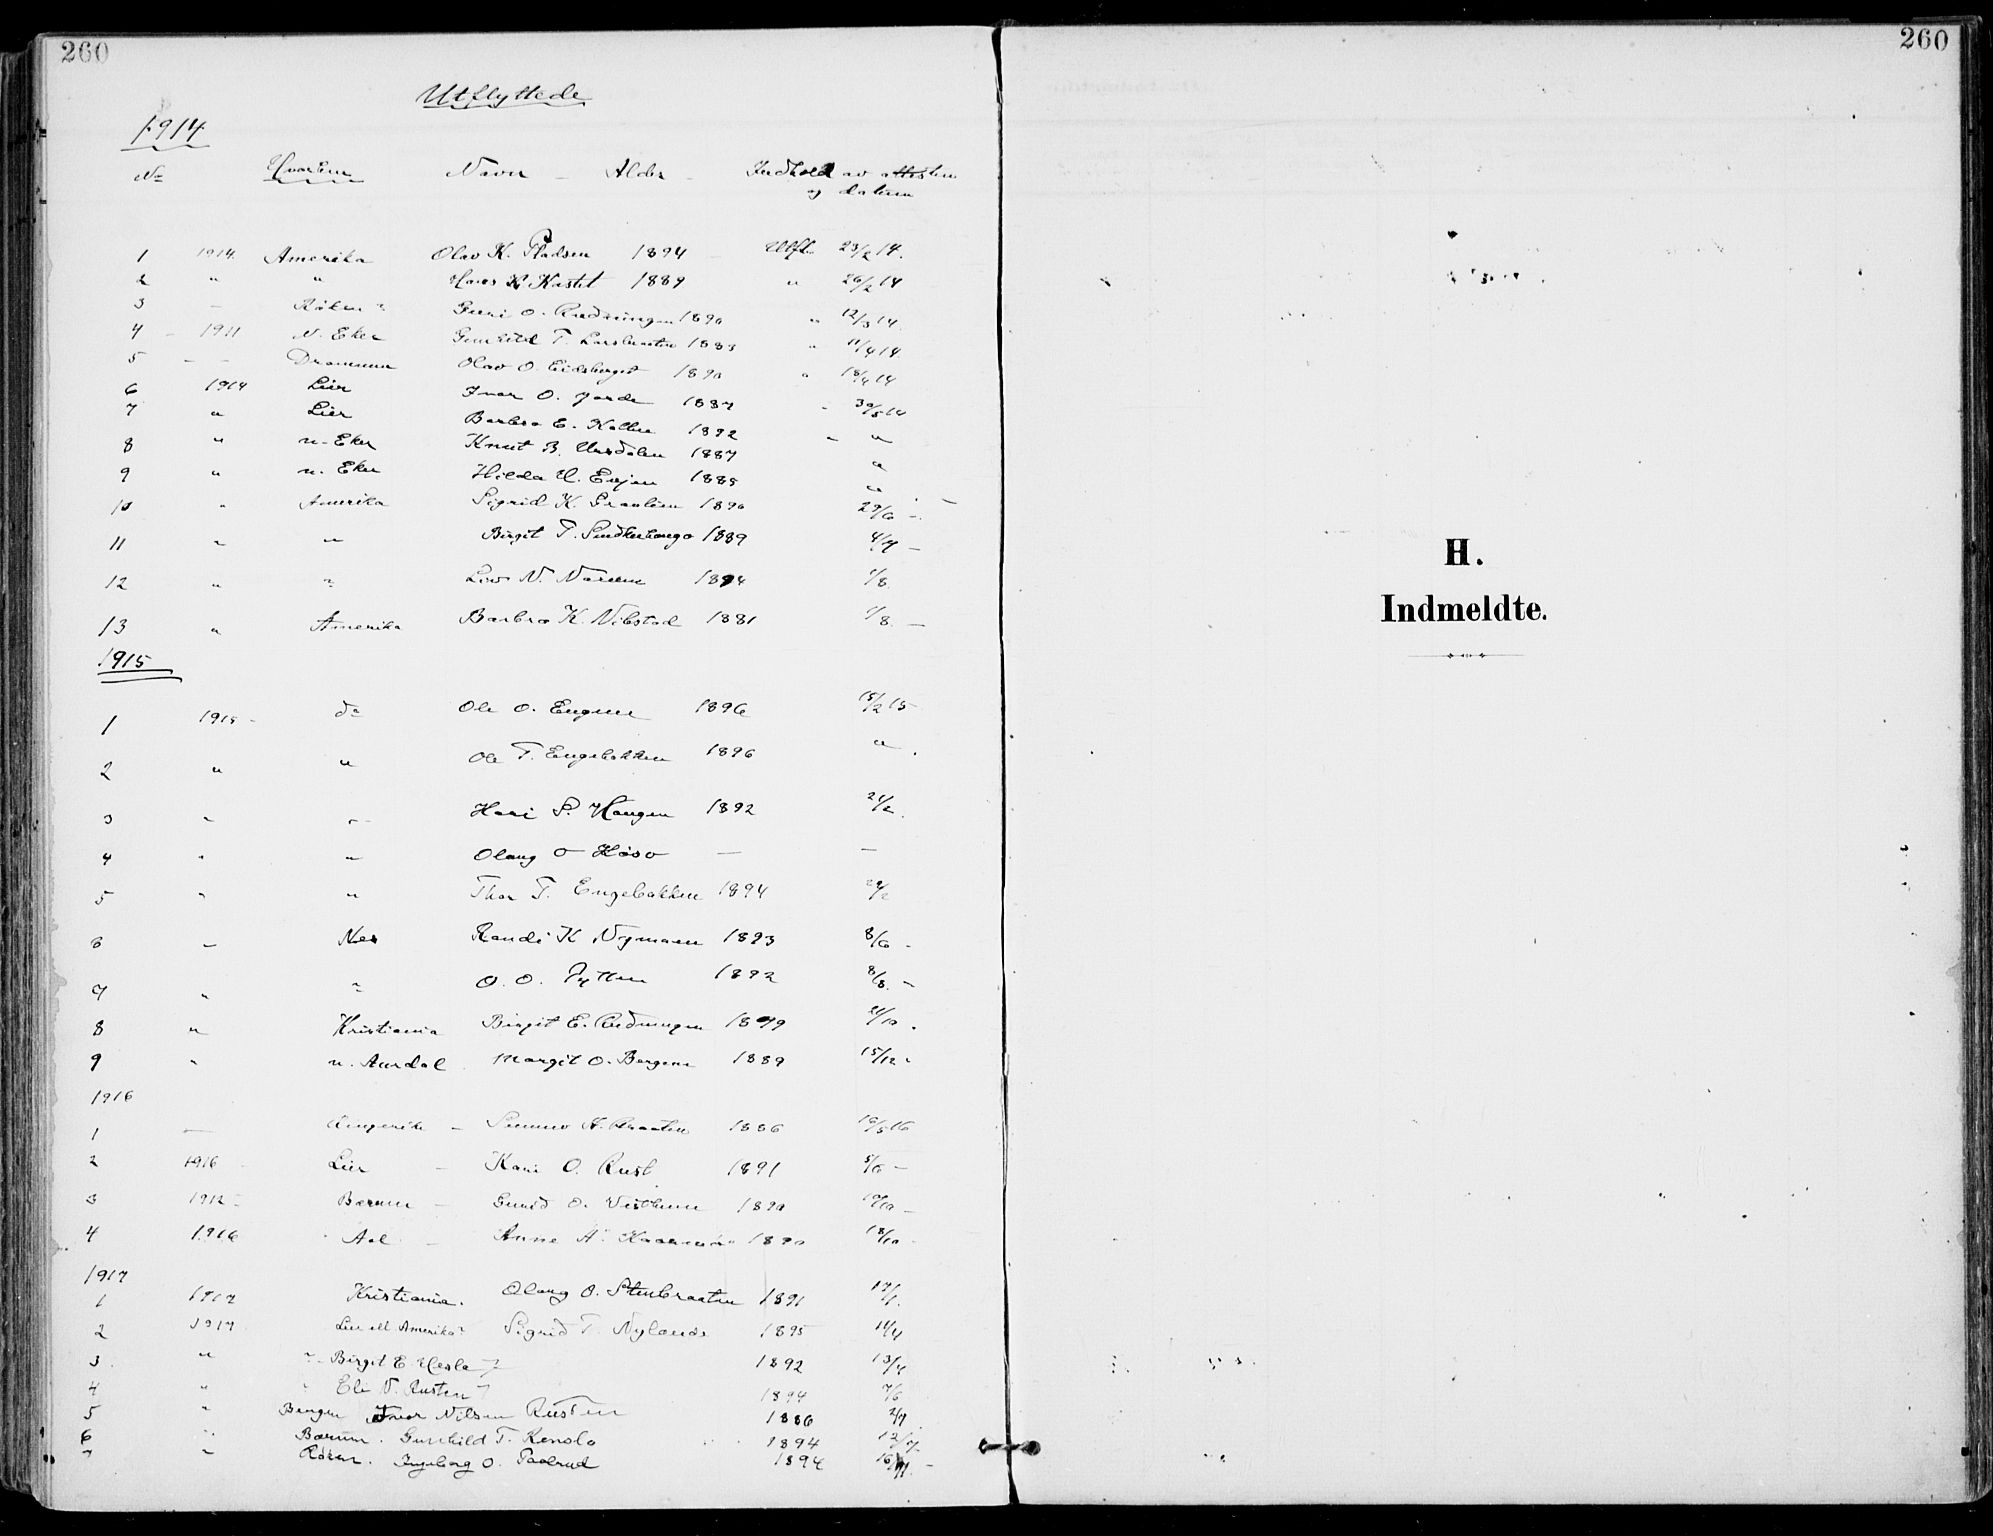 260
Utflyttede
1914
No Hvorhen Navn – Alder – Indhold av attesten
og datum
1 1914 Amerika Olav K. Pladsen 1894 Utfl. 23/2 14.
2 " " Hans K. Kastet 1889 " 26/2 14
3 – Røken Guri O. Rudningen 1890 " 12/3 14.
4 – 1911 N. Eker Gunhild T. Larsbraaten 1883 " 11/4 14.
5 – – Drammen Olav O. Eidsberget 1890 " 18/4 14
6 1914 Lier Ivar O. 1887 - 30/5 14
7 " Lier Barbro E. 1892 - "
8 " n. Eker Knut B. Ursdalen 1887 "
9 " n. Eker Hilda U. 1885 "
10 " Amerika Sigrid K. 1890 29/6 –
11 " " Birgit T. 1889 4/7 –
12 " " Liv N. 1894 1/8.
13 " Amerika Barbro K. Nibstad 1881 1/8. –
1915
1 1915 - do Ole O. Engene 1896 15/2 15
2 " " Ole T. Engebakken 1896 " .
3 " " S. Haugen 1892 21/2.
4 " " Olaug O – –
5 " " Thor T. Engebakken 1894 /2
6 – Nes Randi K 1893 8/6 -
7 " " O. O. Pytten 1892 8/8. –
8 " Kristiania Birgit E. Rudningen 1899 21/10 .
9 " n. Aurdal Margit O. Bergene 1889 15/12 "
1916
1 – Ringerike – 1886 16/5 16
2 1916 Lier – Kari O. Rust 1891 5/6 –
3 1912 - Bærum – Gunild O. 1890 19/10 –
4 1916 Aal – Anne A. 1890 18/10 -
1917
1 1917 Kristiania. Olaug O. Stenbraaten 1891 17/1.
2 1917 Amerika Sigrid T. Nylande 1895 14/4
3. " " Birgit E. Hesla 1892 13/4
4 " " Eli N. Rusten 1894 7/6
5 " Bergen Ivar Nilsen Rusten 1886 2/7
6 " Bærum. Gunhild T. 1894 12/7.
7 " Røken. Ingeborg O. 1894 16/11. –
260
H.
Indmeldte.